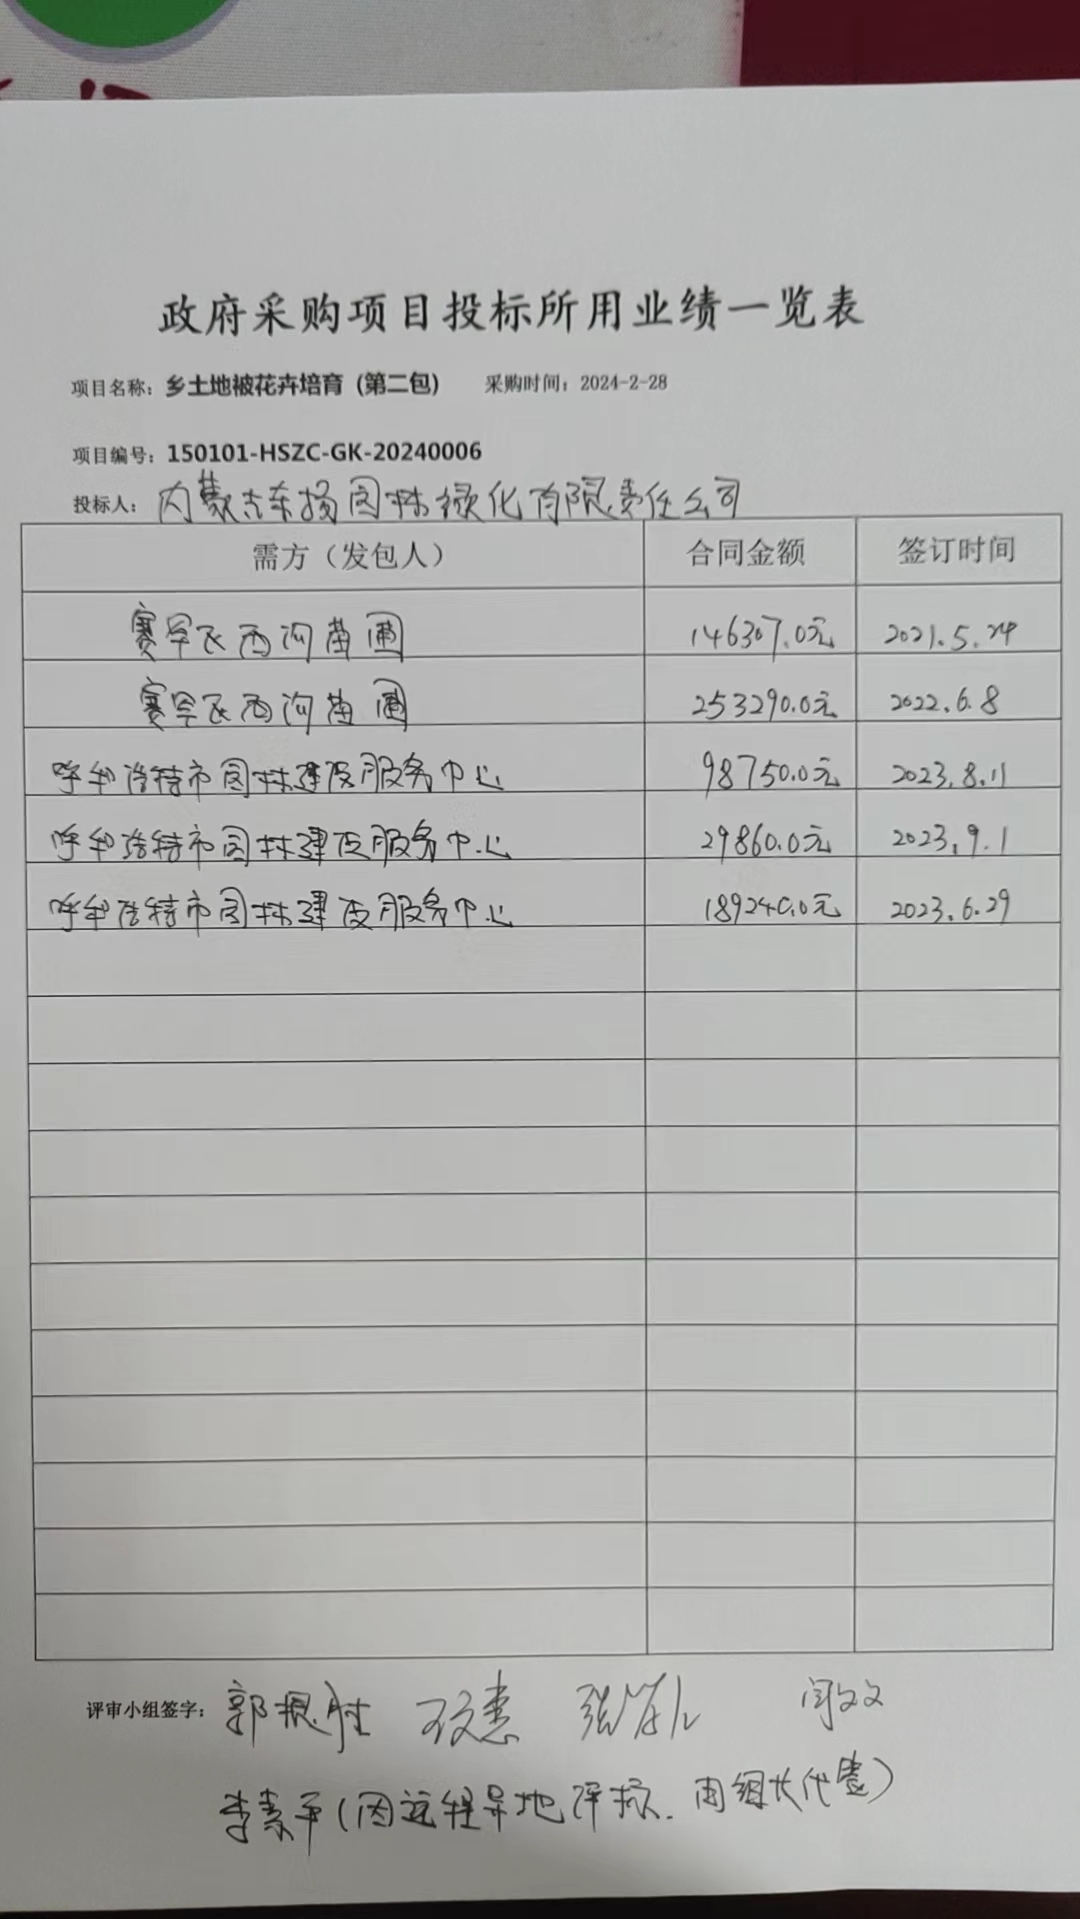 政府采购项目投标所用业绩一览表
项目名称：乡土地被花卉培育（第二包） 采购时间：2024-2-28
项目编号：150101-HSZC-GK-20240006
投标人：内蒙古东扬园林绿化有限责任公司
需方（发包人） 合同金额 签订时间
赛罕区西沟苗圃 146307.0元 2021.5.24
赛罕区西沟苗圃 253290.0元 2022.6.8
呼和浩特市园林建设服务中心 98750.0元 2023.8.11
呼和浩特市园林建设服务中心 29860.0元 2023.9.1
呼和浩特市园林建设服务中心 189240.0元 2023.6.29
评审小组签字：郭振胜 闫文文
李素平（因远程异地评标.由组长代签）